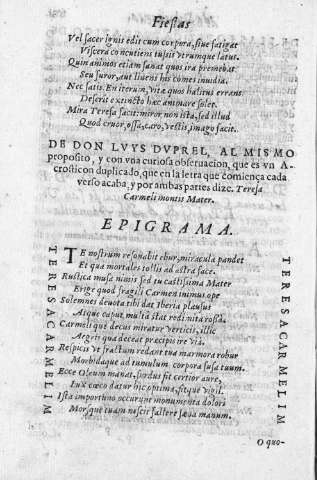 Fiestas
Vel sacer ignis edit cum corpora, siue fatigat
Viscera concutiens tussis vtrumque latus.
Quin animos etiam sanat quos ira premebat
Seu furor, aut liuens his comes inuidia.
Nec satis. En iterum, vita quos habitus errans
Deserit extincto hæc animare solet.
Mira Teresa facit: miror non ista, sed illud
Quod cruor, ossa, caro, vestis, imago facit.
DE DON LVYS DVPREL, AL MISMO
proposito, y con vna curiosa obseruacion, que es vn A-
crosticon duplicado, que en la letra que comiença cada
verso acaba, y por ambas partes dize. Teresa
Carmeli montis Mater.
EPIGRAMA.
TE nostrum resonabit ebur, miracula pandet
Et qua mortales tollis ad astra face.
Rustica musa nimis sed tu castissima Mater
Erige quod fragili Carmen inimus ope
Solemnes deuota tibi dat Iberia plausus
Atque caput multa stat rediuita rosa.
Carmeli qui decus miratur verticis, illic
Aegris qua deceat præcipere via.
Respicis vt fractum redant tua marmora robur
Morbidaque ad tumulum corpora susa tuum.
Ecce Oleum manat, surdus fit certior aure,
Lux cæco datur hic optima, sitque vigil.
Ista importuno occurunt monumenta dolori
Morsque tuam nescit fallere sæua manum.
TERESACARMELIM
TERESACARMELIM
O quo-